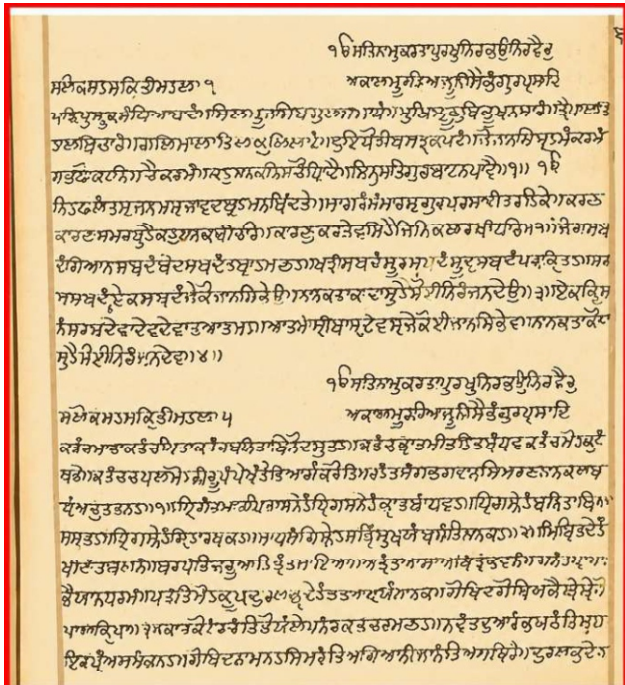 ੴਸਤਿਨਾਮੁਕਰਤਾਪੁਰਖੁਨਿਰਭਉਨਿਰਵੈਰੁ
ਸਲੋਕਸਹਸਕ੍ਰਿਤੀਮਹਲਾ ੧ ਅਕਾਲਮੂਰਤਿਅਜੂਨੀਸੈਭੰਗੁਰਪ੍ਰਸਾਦਿ
ਪੜਿਪੁਸ੍ਤਕਸੰਧਿਆਬਾਦੰ॥ਸਿਲਪੂਜਸਿਬਗੁਲਸਮਾਧੰ॥ਮੁਖਿਝੂਠੁਬਿਭੂਖਨਸਾਰੰ॥ਤ੍ਰੈਪਾਲਤਿ
ਹਾਲਬਿਚਾਰੰ॥ਗਲਿਮਾਲਾਤਿਲਕਲਿਲਾਟੰ॥ਦੁਇਧੋਤੀਬਸਤ੍ਰਕਪਟੰ॥ਜੋਜਾਨਸਿਬ੍ਰਹਮੰਕਰਮੰ
ਸਭਫੋਕਟਨਿਸਚੈਕਰਮੰ॥ਕਹੁਨਾਨਕਨਿਸਚੌਧਿਾਵੈ॥ਬਿਨੁਸਤਿਗੁਰਬਾਟਨਪਾਵੈ॥੧॥ ੴ
ਨਿਹਫਲੰਤਸ੍ਯਜਨਮਸ੍ਯਜਾਵਦਬ੍ਰਹਮਨਬਿੰਦਤੇ॥ਸਾਗਰੰਸੰਸਾਰਸ੍ਯਗੁਰਪਰਸਾਦੀਤਰਹਿਕੇ॥ਕਰਣ
ਕਾਰਣਸਮਰਥੁਹੈਕਹੁਨਾਨਕਬੀਚਾਰਿ॥ਕਾਰਣੁਕਰਤੇਵਸਿਹੈਜਿਨਿਕਲਰਖੀਧਾਰਿ॥੨॥ਜੋਗਸਬ
ਦੰਗਿਆਨਸਬਦੰਬੇਦਸਬਦੰਤਬ੍ਰਾਹਮਣਹ॥ਖਤ੍ਰੀਸਬਦੰਸੂਰਸਬਦੰਸੂਦ੍ਰਸਬਦੰਪਰਾਕ੍ਰਿਤਹ॥ਸਰਬ
ਸਬਦੰਤਏਕਸਬਦੰਜੇਕੋਜਾਨਸਿਭੇਉ॥ਨਾਨਕਤਾਕੋਦਾਸੁਹੈਸੋਈਨਿਰੰਜਨਦੇਉ॥੩॥ਏਕਕ੍ਰਿਸ
ਨੰਤਸਰਬਦੇਵਾਦੇਵਦੇਵਾਤਆਤਮਹ॥ਆਤਮੰਸ੍ਰੀਬਾਸ੍ਵਦੇਵਸ੍ਯਜੇਕੋਈਜਾਨਸਿਭੇਵ॥ਨਾਨਕਤਾਕੋਦਾ
ਸੁਹੈਸੋਈਨਿਰੰਜਨਦੇਵ॥੪॥
ੴਸਤਿਨਾਮੁਕਰਤਾਪੁਰਖੁਨਿਰਭਉਨਿਰਵੈਰੁ
ਸਲੋਕਸਹਸਕ੍ਰਿਤੀਮਹਲਾ ੫ ਅਕਾਲਮੂਰਤਿਅਜੂਨੀਸੈਭੰਗੁਰਪ੍ਰਸਾਦਿ
ਕਤੰਚਮਾਤਾਕਤੰਚਪਿਤਾਕਤੰਚਬਨਿਤਾਬਿਨੋਦਸੁਤਹ॥ਕਤੰਚਭ੍ਰਾਤਮੀਤਹਿਤਬੰਧਵਕਤੰਚਮੋਹਕੁਟੰ
ਬਤੇ॥ਕਤੰਚਚਪਲਮੋਹਨੀਰੂਪੰਪੇਖੰਤੇਤਿਆਗੰਕਰੋਤਿ॥ਰਹੰਤਸੰਗਭਗਵਾਨਸਿਮਰਣਨਾਨਕਲਬ
ਧੰਅਚੁਤਤਨਹ॥੧॥ਧ੍ਰਿਗੰਤਮਾਤਪਿਤਾਸਨੇਹੰਧ੍ਰਿਗਸਨੇਹੰਭ੍ਰਾਤਬਾਂਧਵਹ॥ਧ੍ਰਿਗਸ੍ਨੇਹੰਬਨਿਤਾਬਿਲਾ
ਸਸੁਤਹ॥ਧ੍ਰਿਗਸ੍ਨੇਹੰਗ੍ਰਿਹਾਰਥਕਹ॥ਸਾਧਸੰਗਸ੍ਨੇਹਸਤ੍ਯਿੰਸੁਖਯੰਬਸੰਤਿਨਾਨਕਹ॥੨॥ਮਿਥ੍ਯੰਤਦੇਹੰ
ਖੀਣੰਤਬਲਨੰ॥ਬਰਧੰਤਿਜਰੂਆਹਿਤ੍ਯੰਤਮਾਇਆ॥ਅਤ੍ਯੰਤਆਸਾਆਥਿਤ੍ਯਭਵਨੰ॥ਗਨੰਤਸ੍ਵਾਸਾ
ਭੈਯਾਨਧਰਮੰ॥ਪਤੰਤਿਮੋਹਕੂਪਦੁਰਲਭ੍ਯਦੇਹੰਤਤਆਸ੍ਰਯੰਨਾਨਕ॥ਗੋਬਿੰਦਗੋਬਿੰਦਗੋਬਿੰਦ
ਇਕਪ੍ਰਿਅਸਮੰਕਨਹ॥ਗੋਬਿੰਦਨਾਮਨਹਸਿਮਰੰਤਿਅਗਿਆਨੀਜਾਨੰਤਿਅਸਥਿਰੰ॥ਦੁਰਲਭਦੇਹ